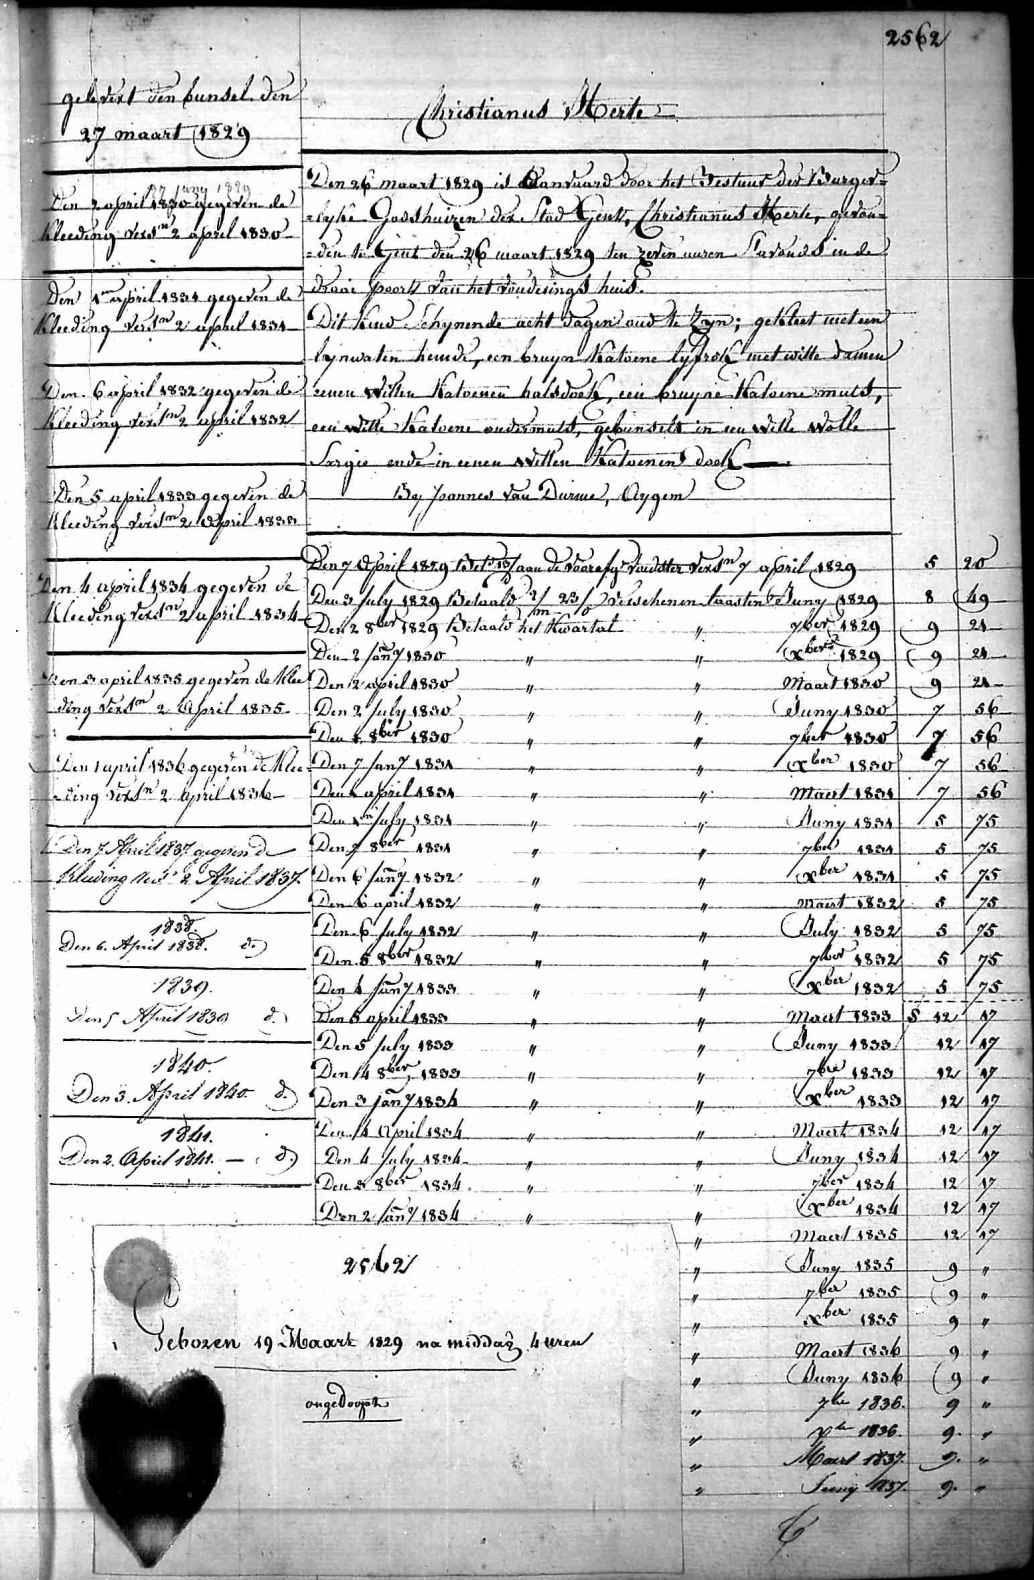 2562
gelevert den bunsel den
27 maart 1829
Christianus Herte
27 Juny 1829
Den 2 april 1830 gegeven de
Kleeding versn 2 april 1830
Den 1en april 1831 gegeven de
Kleeding versn 2 april 1831
Den 6 april 1832 gegeven de
Kleeding versn 2 april 1832
Den 5 april 1833 gegeven de
Kleeding versn 2 april 1833
Den 4 april 1834 gegeven de
Kleeding versn 2 april 1834
Den 3 april 1835 gegeven de Klee
ding versn 2 April 1835
Den 1 april 1836 gegeven de Klee
ding versn 2 april 1836
Den 7 April 1837 gegeven de
Kleeding 2 April 1837.
1838.
Den 6. April 1838. do
1839.
Den 5 April 1839 do
1840.
Den 3. April 1840. do
1841.
Den 2. April 1841. — do
Den 26 maart 1829 is Aanvaard door het Bestuur der Burger=
=lyke Godshuizen der Stad Gent, Christianus Herte, gevon=
=den te Gent den 26 maart 1829 ten zeven uuren s'avonds in de
draaepoort van het vondelings huis.
Dit Kind Schynende acht dagen oud te Zyn; gekleet met een
lynwaten hemde, een bruyn Katoene lyfrok met witte
eenen Witten Katoenen halsdoek, een bruyne Katoene muts,
een witte Katoene ondermuts, gebunselt in een Witte Wolle
Sargie ende in eenen Witten Katoenen doek
By Joannes Van Durme, Aygem
Den 7 April 1829 aan de voedster versn 7 april 1829 5 20
Den 3 July 1829 Betaald 2/m 23/ verschenen laasten Juny 1829 8 49
Den 2 8ber 1829 Betaald het Kwartal " 7ber 1829 9 21
Den 2 Jany 1830 " " Xber 1829 9 21
Den 2 april 1830 " " Maart 1830 9 21
Den 2 July 1830 " " Juny 1830 7 56
Den 1 8ber 1830 " " 7ber 1830 7 56
Den 7 Jany 1831 " " Xber 1830 7 56
Den april 1831 " " Maert 1831 7 56
Den 1n July 1831 " " Juny 1831 5 75
Den 7 8ber 1831 " " 7ber 1831 5 75
Den 6 Jany 1832 " " Xber 1831 5 75
Den 6 april 1832 " " Maert 1832 5 75
Den 6 July 1832 " " July 1832 5 75
Den 5 8ber 1832 " " 7ber 1832 5 75
Den 4 Jany 1833 " " Xber 1832 5 75
Den 5 april 1833 " " Maert 1833 12 17
Den 5 July 1833 " " Juny 1833 12 17
Den 4 8ber 1833 " " 7bre 1833 12 17
Den 3 Jany 1834 " " Xber 1833 12 17
Den 4 April 1834 " " Maert 1834 12 17
Den 4 July 1834 " " Juny 1834 12 17
Den 3 8ber 1834 " " 7ber 1834 12 17
Den 2 Jany 1834 " " Xber 1834 12 17
" Maert 1835 12 17
" Juny 1835 9 "
" 7ber 1835 9 "
" Xber 1835 9 "
" Maert 1836 9 "
" Juny 1836 9 "
" 7be 1836. 9 "
" Xbe 1836. 9. "
" Maert 1837. 9. "
" Juny 1837. 9. "
2562
Gebozen 19 Maart 1829 na middag 4 uren
ongedoopt